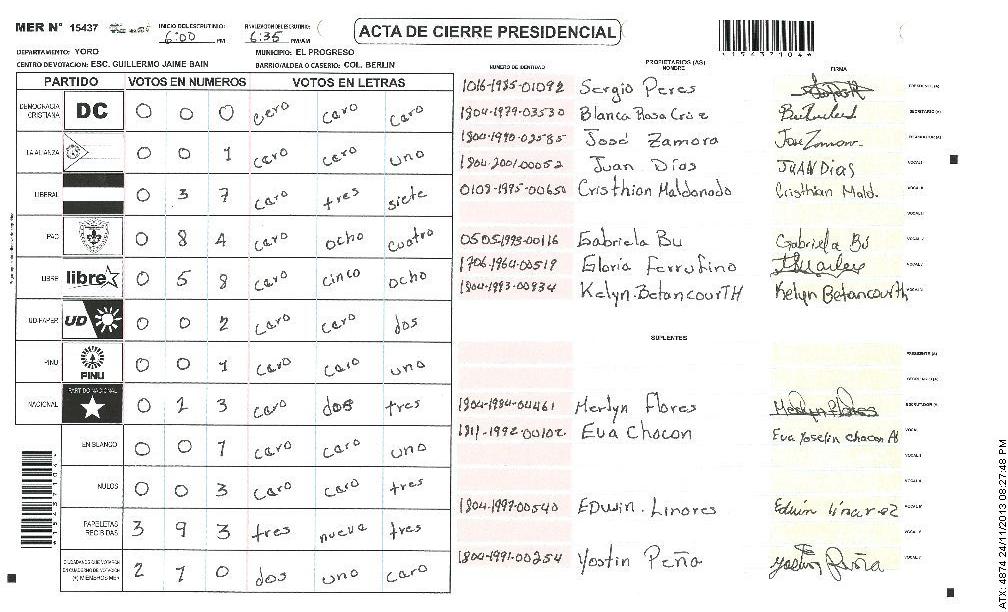 MER N° 15437
INICIO DEL ESCRUTINIO: 6:00 PM
FINALIZACION DEL ESCRUTINIO: 6:35 PM/AM
ACTA DE CIERRE PRESIDENCIAL
DEPARTAMENTO: YORO
MUNICIPIO: EL PROGRESO
CENTRO DE VOTACION: ESC. GUILLERMO JAIME BAIN
BARRIO/ALDEA O CASERIO: COL. BERLIN
PARTIDO VOTOS EN NUMEROS VOTOS EN LETRAS
DEMOCRACIA CRISTIANA DC 0 0 0 cero caro caro
LA ALIANZA 0 0 1 caro cero uno
LIBERAL 0 3 7 caro tres siete
PAC 0 8 4 caro ocho cuatro
LIBRE libre 0 5 8 caro cinco ocho
UD-FAPER UD 0 0 2 caro caro dos
PINU PINU 0 0 1 caro caro uno
NACIONAL PARTIDO NACIONAL 0 2 3 caro dos tres
EN BLANCO 0 0 1 caro caro uno
NULOS 0 0 3 caro caro tres
PAPELETAS RECIBIDAS 3 9 3 tres nueva tres
CIUDADANOS QUE VOTARON EN CUADERNO DE VOTACION (+) MIEMBROS MER 2 1 0 dos uno caro
NUMERO DE IDENTIDAD
PROPIETARIOS (AS)
NOMBRE
FIRMA
1016-1985-01092 Sergio Peres PRESIDENTE (A)
1804-1979-03530 Blanca Rosa Cruz SECRETARIO (A)
1804-1990-02585 José Zamora Jose Zamora ESCRUTADOR (A)
1804-2001-00052 Juan Días JUAN DIAS VOCAL I
0109-1995-00650 Cristhian Maldonado Cristhian Mald. VOCAL II
VOCAL III
0505-1993-00116 Gabriela Bu Gabriela Bu
1706-1964-00519 Gloria Ferrufino
1804-1993-00934 Kelyn BetancourTH Kelyn Betancourth
SUPLENTES
PRESIDENTE (A)
SECRETARIO (A)
1804-1984-04461 Merlyn Flores Merlyn Flores ESCRUTADOR (A)
1811-1992-00102 Eva Chacon Eva Yoselin Chacon
1804-1997-00540 EDwin Linares Edwin Linarez
1804-1991-00254 Yostin Peña Yostin Peña
ATX: 4874 24/11/2013 08:27:48 PM